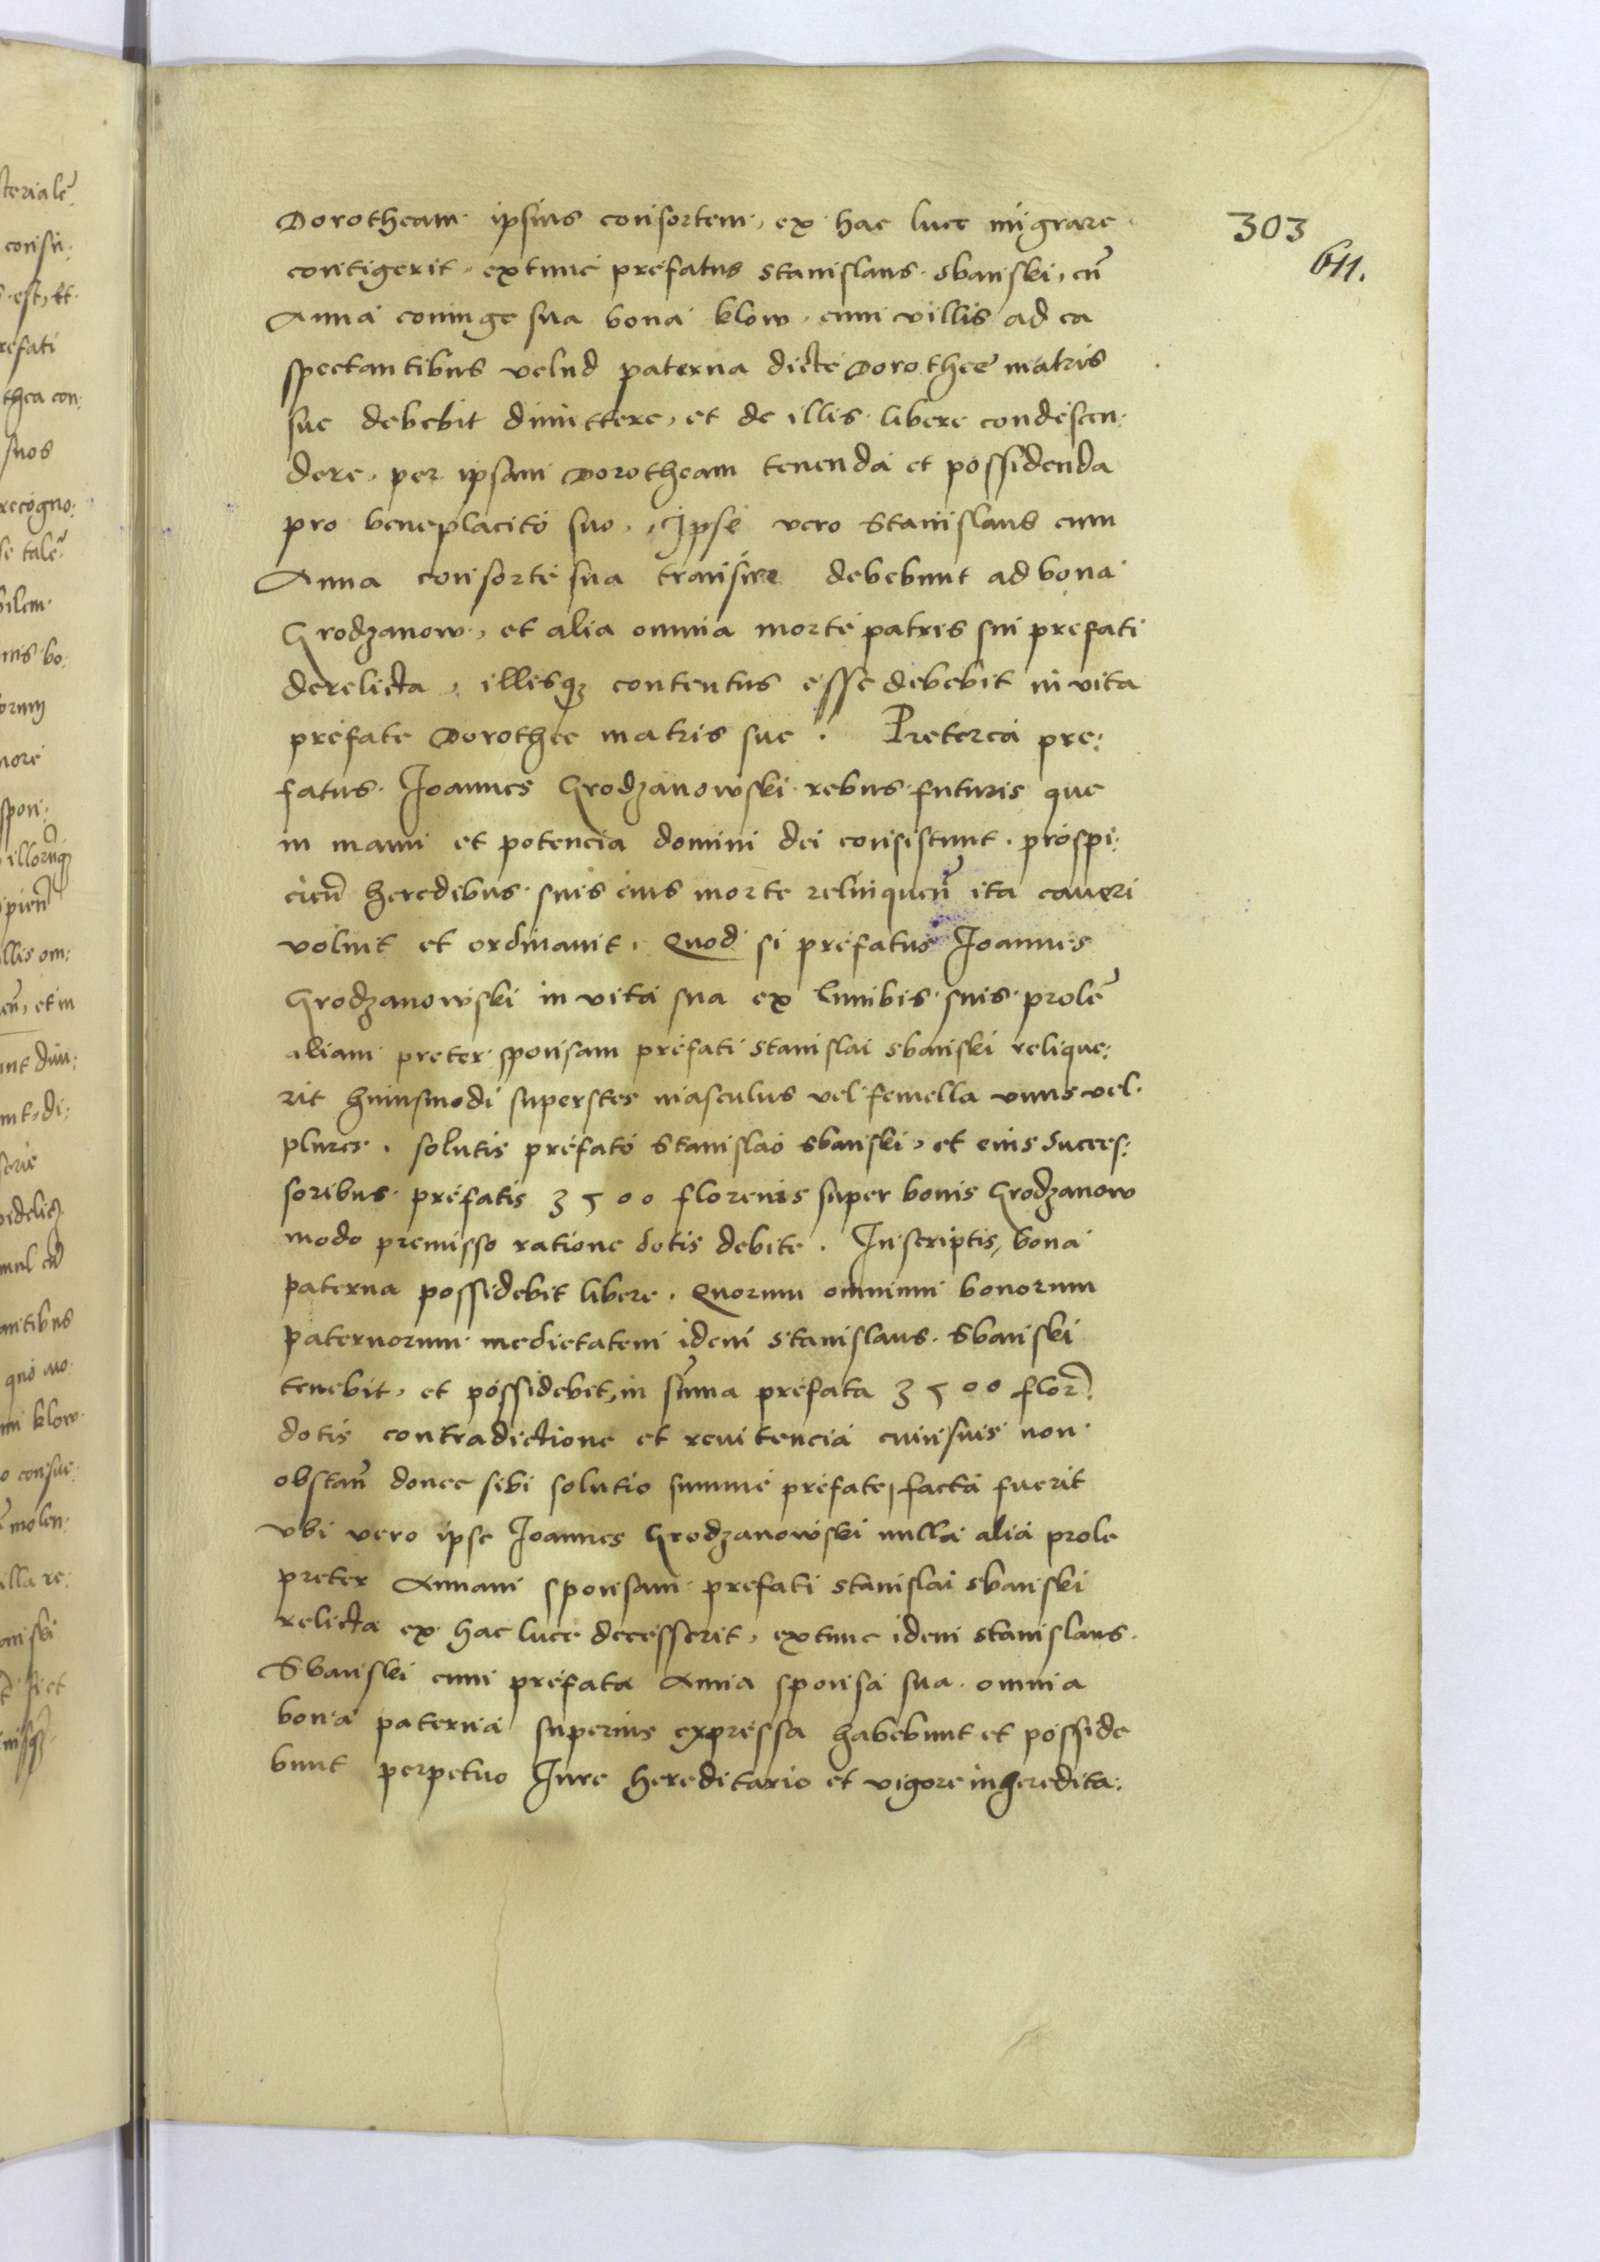 303
611.
Dorotheam ipsius consortem, ex hac luce migrare
contigerit, extunc prefatus Stanislaus Sbanski, cu͂
Anna coniuge sua bona Klow, cum villis ad ea
spectantibus velud paterna dicte Dorothee matris
sue debebit dimittere, et de illis libere condescen:
dere, per ipsam Dorotheam tenenda et possidenda
pro beneplacito suo, Ipse vero Stanislaus cum
Anna consorte sua transire debebunt ad bona
Grodzanow, et alia omnia morte patris sui prefati
derelicta, illisqꝫ contentus esse debebit in vita
prefate Dorothee matris sue. Preterea pre:
fatus Joannes Grodzanowski rebus futuris que
in manu et potencia domini dei consistunt. prospi:
cien͂ heredibus suis eius morte relinquen͂ ita caveri
voluit et ordinavit. Quod si prefatus Joannes
Grodzanowski in vita sua ex lumbis suis prole͂
aliam preter sponsam prefati Stanislai Sbanski relique:
rit huiusmodi superstes masculus vel femella unus vel
plures. solutis prefato Stanislao Sbanski, et eius succes:
soribus prefatis 3500 florenis super bonis Grodzanow
modo premisso ratione dotis debite. Inscriptis, bona
paterna possidebit libere. Quorum omnium bonorum
paternorum medietatem idem Stanislaus Sbanski
tenebit, et possidebit, in su͂ma prefata 3500 flor͂.
dotis contradictione et renitencia cuiusvis non
obstan͂ donec sibi solutio summe prefate, facta fuerit
Ubi vero ipse Joannes Grodzanowski nulla alia prole
preter Annam sponsam prefati Stanislai Sbanski
relicta ex hac luce decesserit, extunc idem Stanislaus
Sbanski cum prefata Anna sponsa sua omnia
bona paterna superius expressa habebunt et posside
bunt perpetuo Iure hereditario et vigore inheredita: